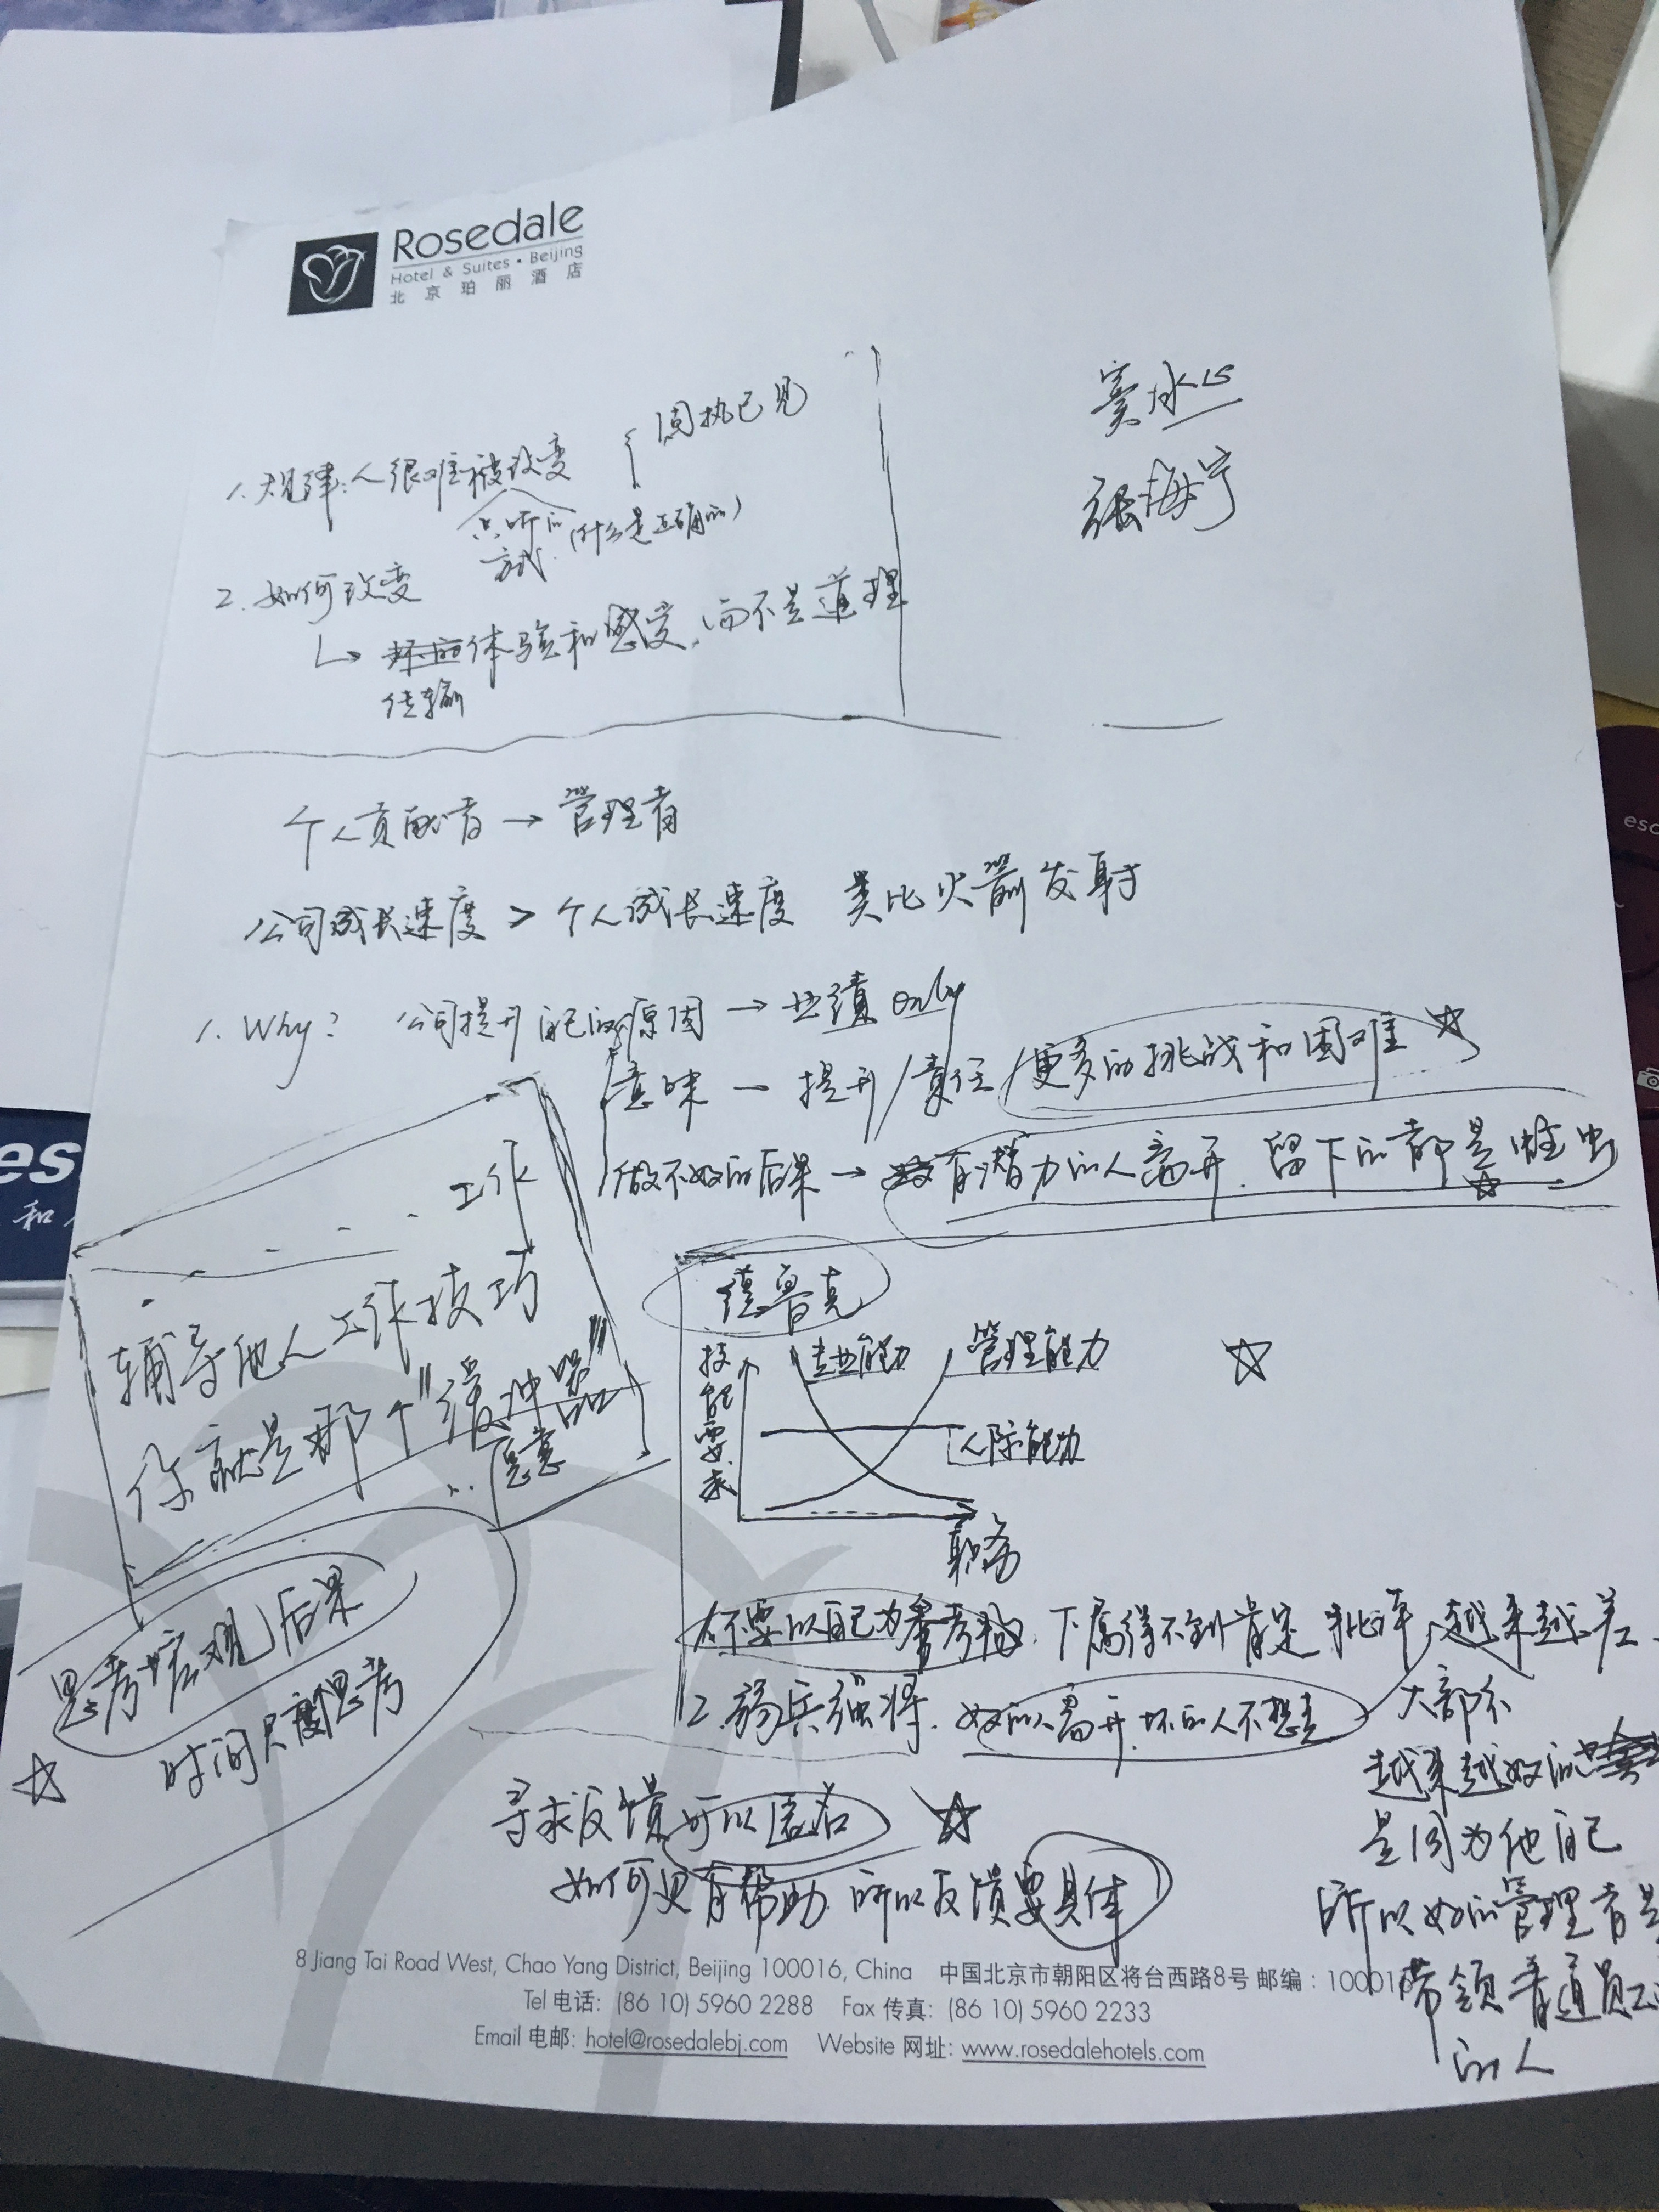 Rosedale
Hotel & Suites • Beijing
北京珀丽酒店
固执己见
1. 规律：人很难被改变
只听
方式 (什么是正确的)
2. 如何改变
体验和感受，而不是道理
传输
张海宁
个人贡献者 → 管理者
公司成长速度 > 个人成长速度 类比火箭发射
1. Why? 公司提升自己的原因 → 业绩 only
意味 — 提升/责任/更多的挑战和困难
做不好的后果 → 有潜力的人离开，留下的都是
工作
辅导他人工作技巧
你就是那个"缓冲器"
愿意
德鲁克
技能要求
专业能力
管理能力
人际能力
职务
思考宏观后果
时间尺度思考
不要以自己为参考 下属得不到肯定 批评，越来越差
2. 弱兵强将，好的人离开，坏的人不想走
大部分
越来越好的
是因为他自己
所以好的管理者是
带领普通员工
的人
寻求反馈可以匿名
如何更有帮助 所以反馈要具体
8 Jiang Tai Road West, Chao Yang District, Beijing 100016, China 中国北京市朝阳区将台西路8号 邮编：10001
Tel 电话: (86 10) 5960 2288 Fax 传真: (86 10) 5960 2233
Email 电邮: hotel@rosedalebj.com Website 网址: www.rosedalehotels.com
es
和
esc